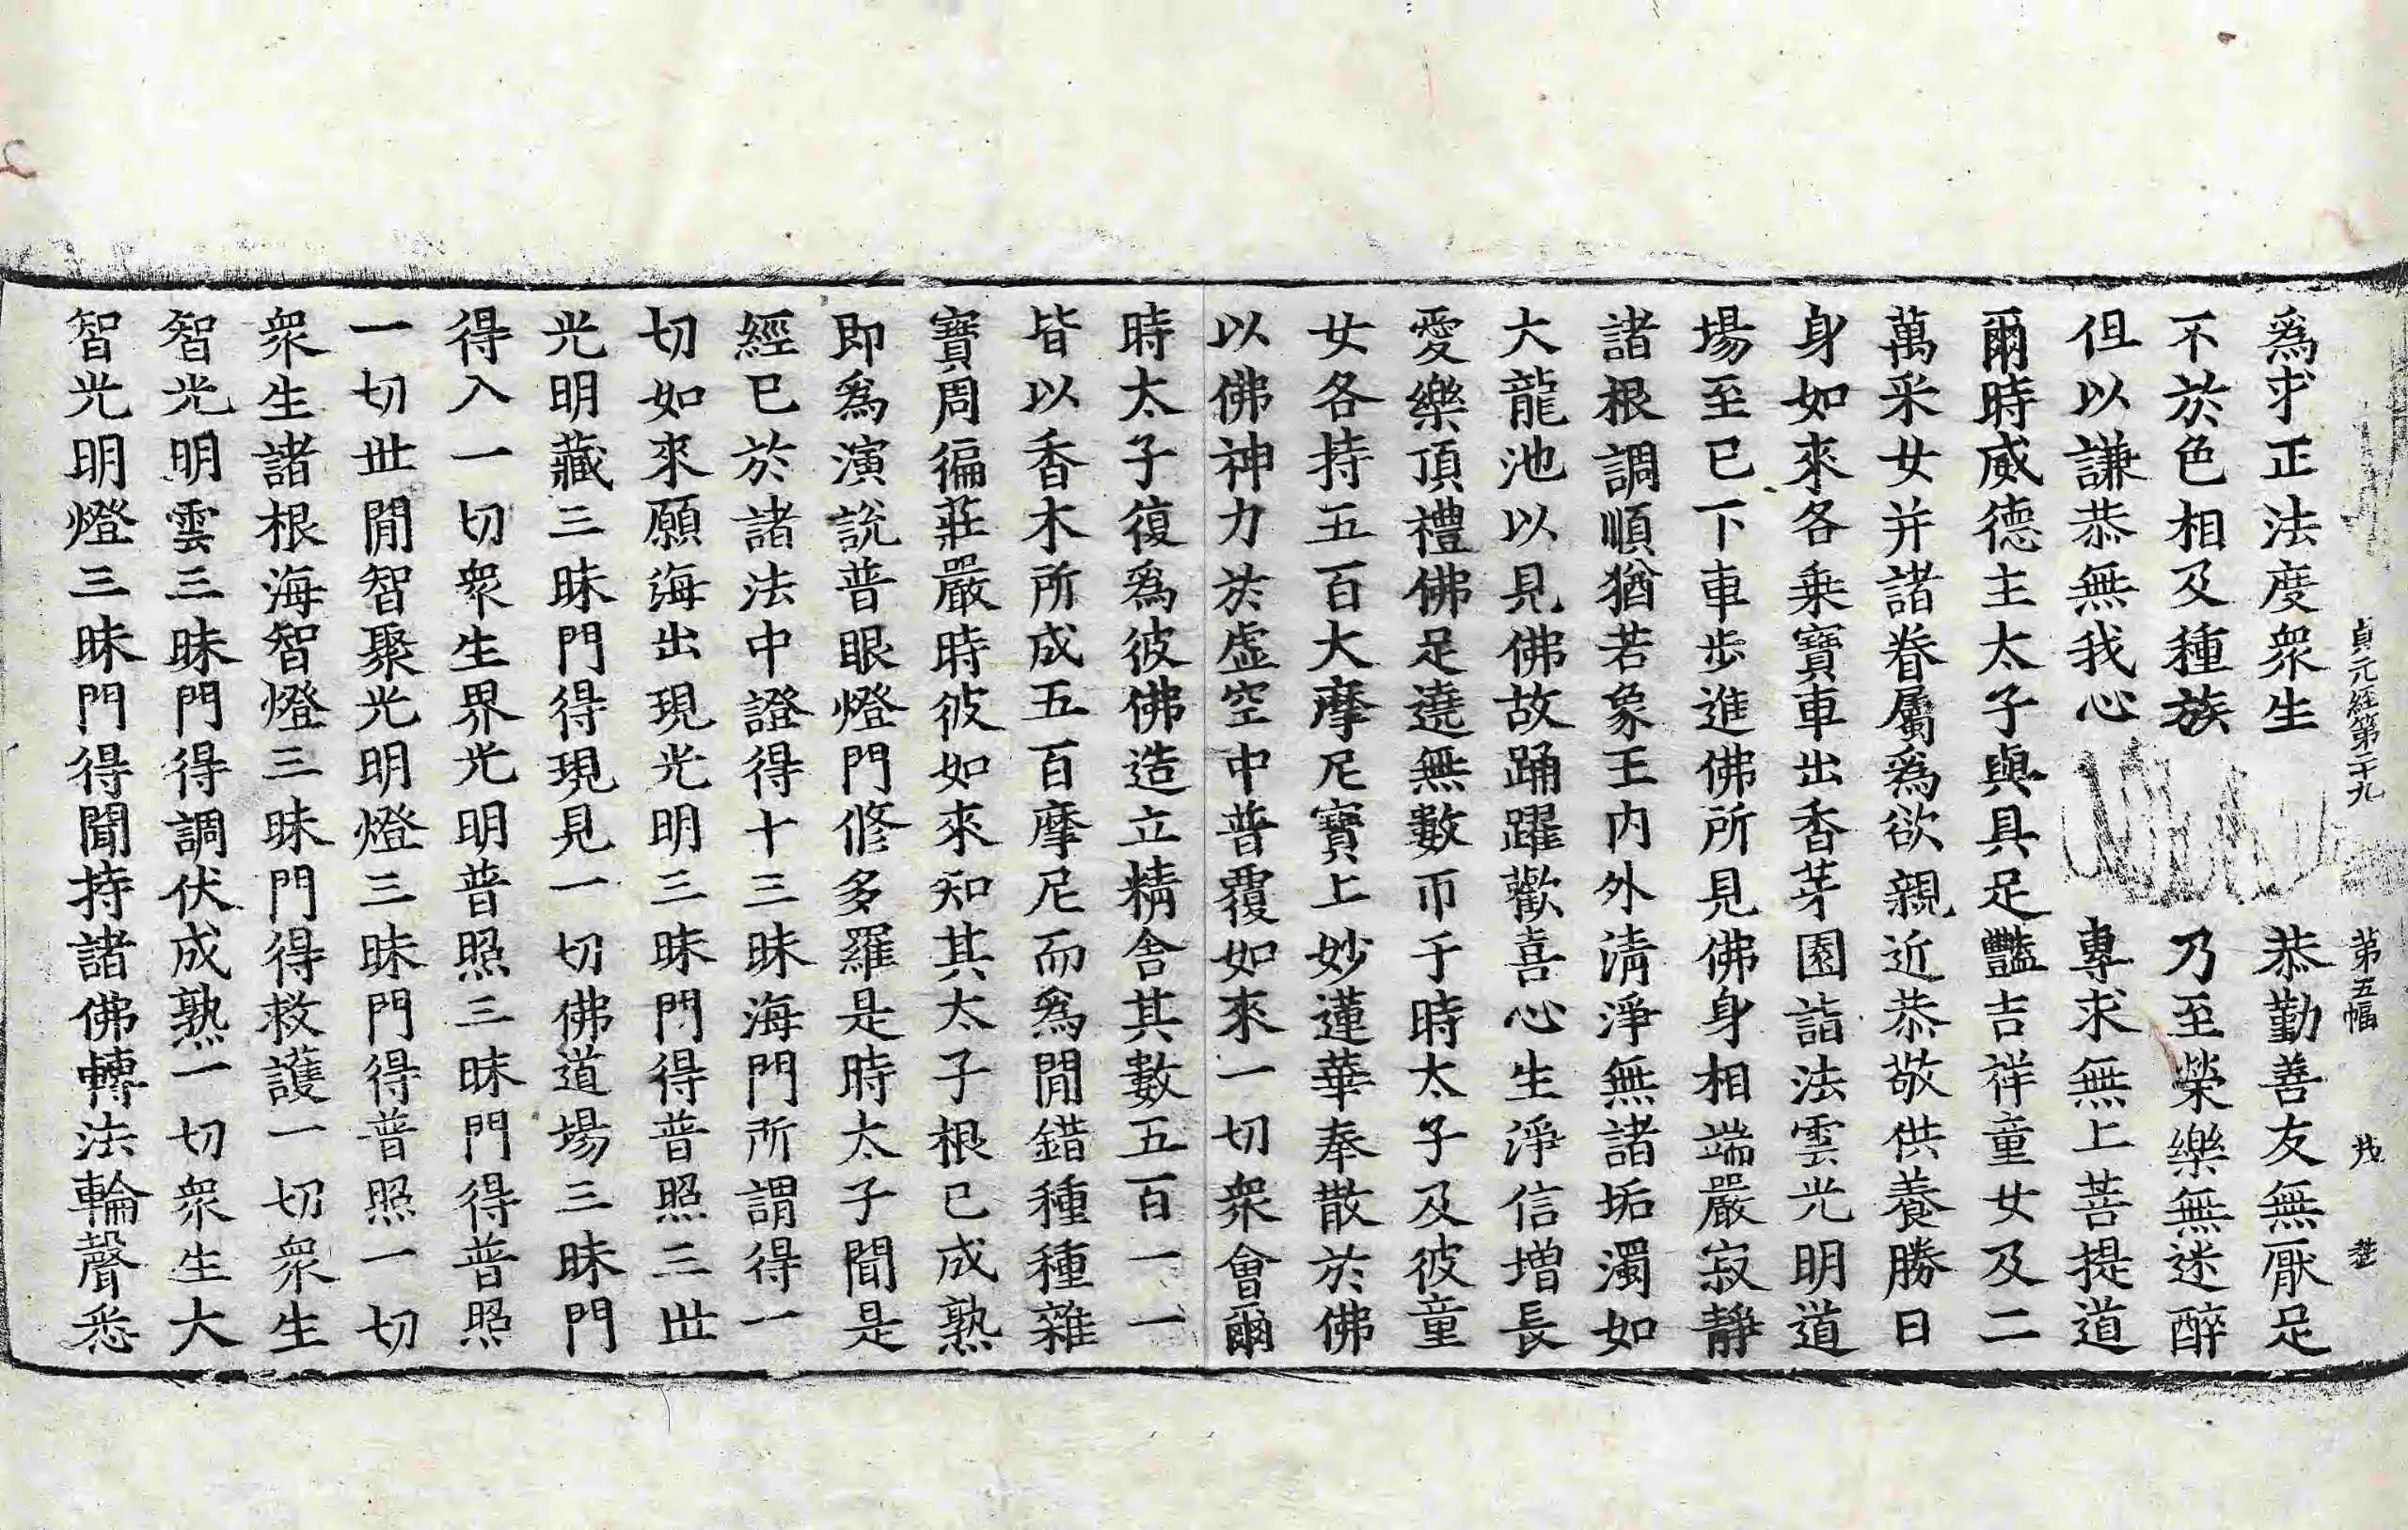 貞元經第二十九　第五幅　茂
爲求正法度衆生　恭勤善友無厭足
不於色相及種族　乃至榮樂無迷醉
但以謙恭無我心　專求無上菩提道
爾時威德主太子與具足豔吉祥童女及二
萬采女并諸眷屬爲欲親近恭敬供養勝日
身如來各乘寶車出香芽園詣法雲光明道
場至已下車步進佛所見佛身相端嚴寂靜
諸根調順猶若象王内外清淨無諸垢濁如
大龍池以見佛故踊躍歡喜心生淨信增長
愛樂頂禮佛足遶無數帀于時太子及彼童
女各持五百大摩尼寶上妙蓮華奉散於佛
以佛神力於虛空中普覆如來一切衆會爾
時太子復爲彼佛造立精舍其數五百一一
皆以香木所成五百摩尼而爲閒錯種種雜
寶周徧莊嚴時彼如來知其太子根已成熟
即爲演說普眼燈門修多羅是時太子聞是
經已於諸法中證得十三昧海門所謂得一
切如來願海出現光明三昧門得普照三世
光明藏三昧門得現見一切佛道場三昧門
得入一切衆生界光明普照三昧門得普照
一切世閒智聚光明燈三昧門得普照一切
衆生諸根海智燈三昧門得救護一切衆生
智光明雲三昧門得調伏成熟一切衆生大
智光明燈三昧門得聞持諸佛轉法輪聲悉